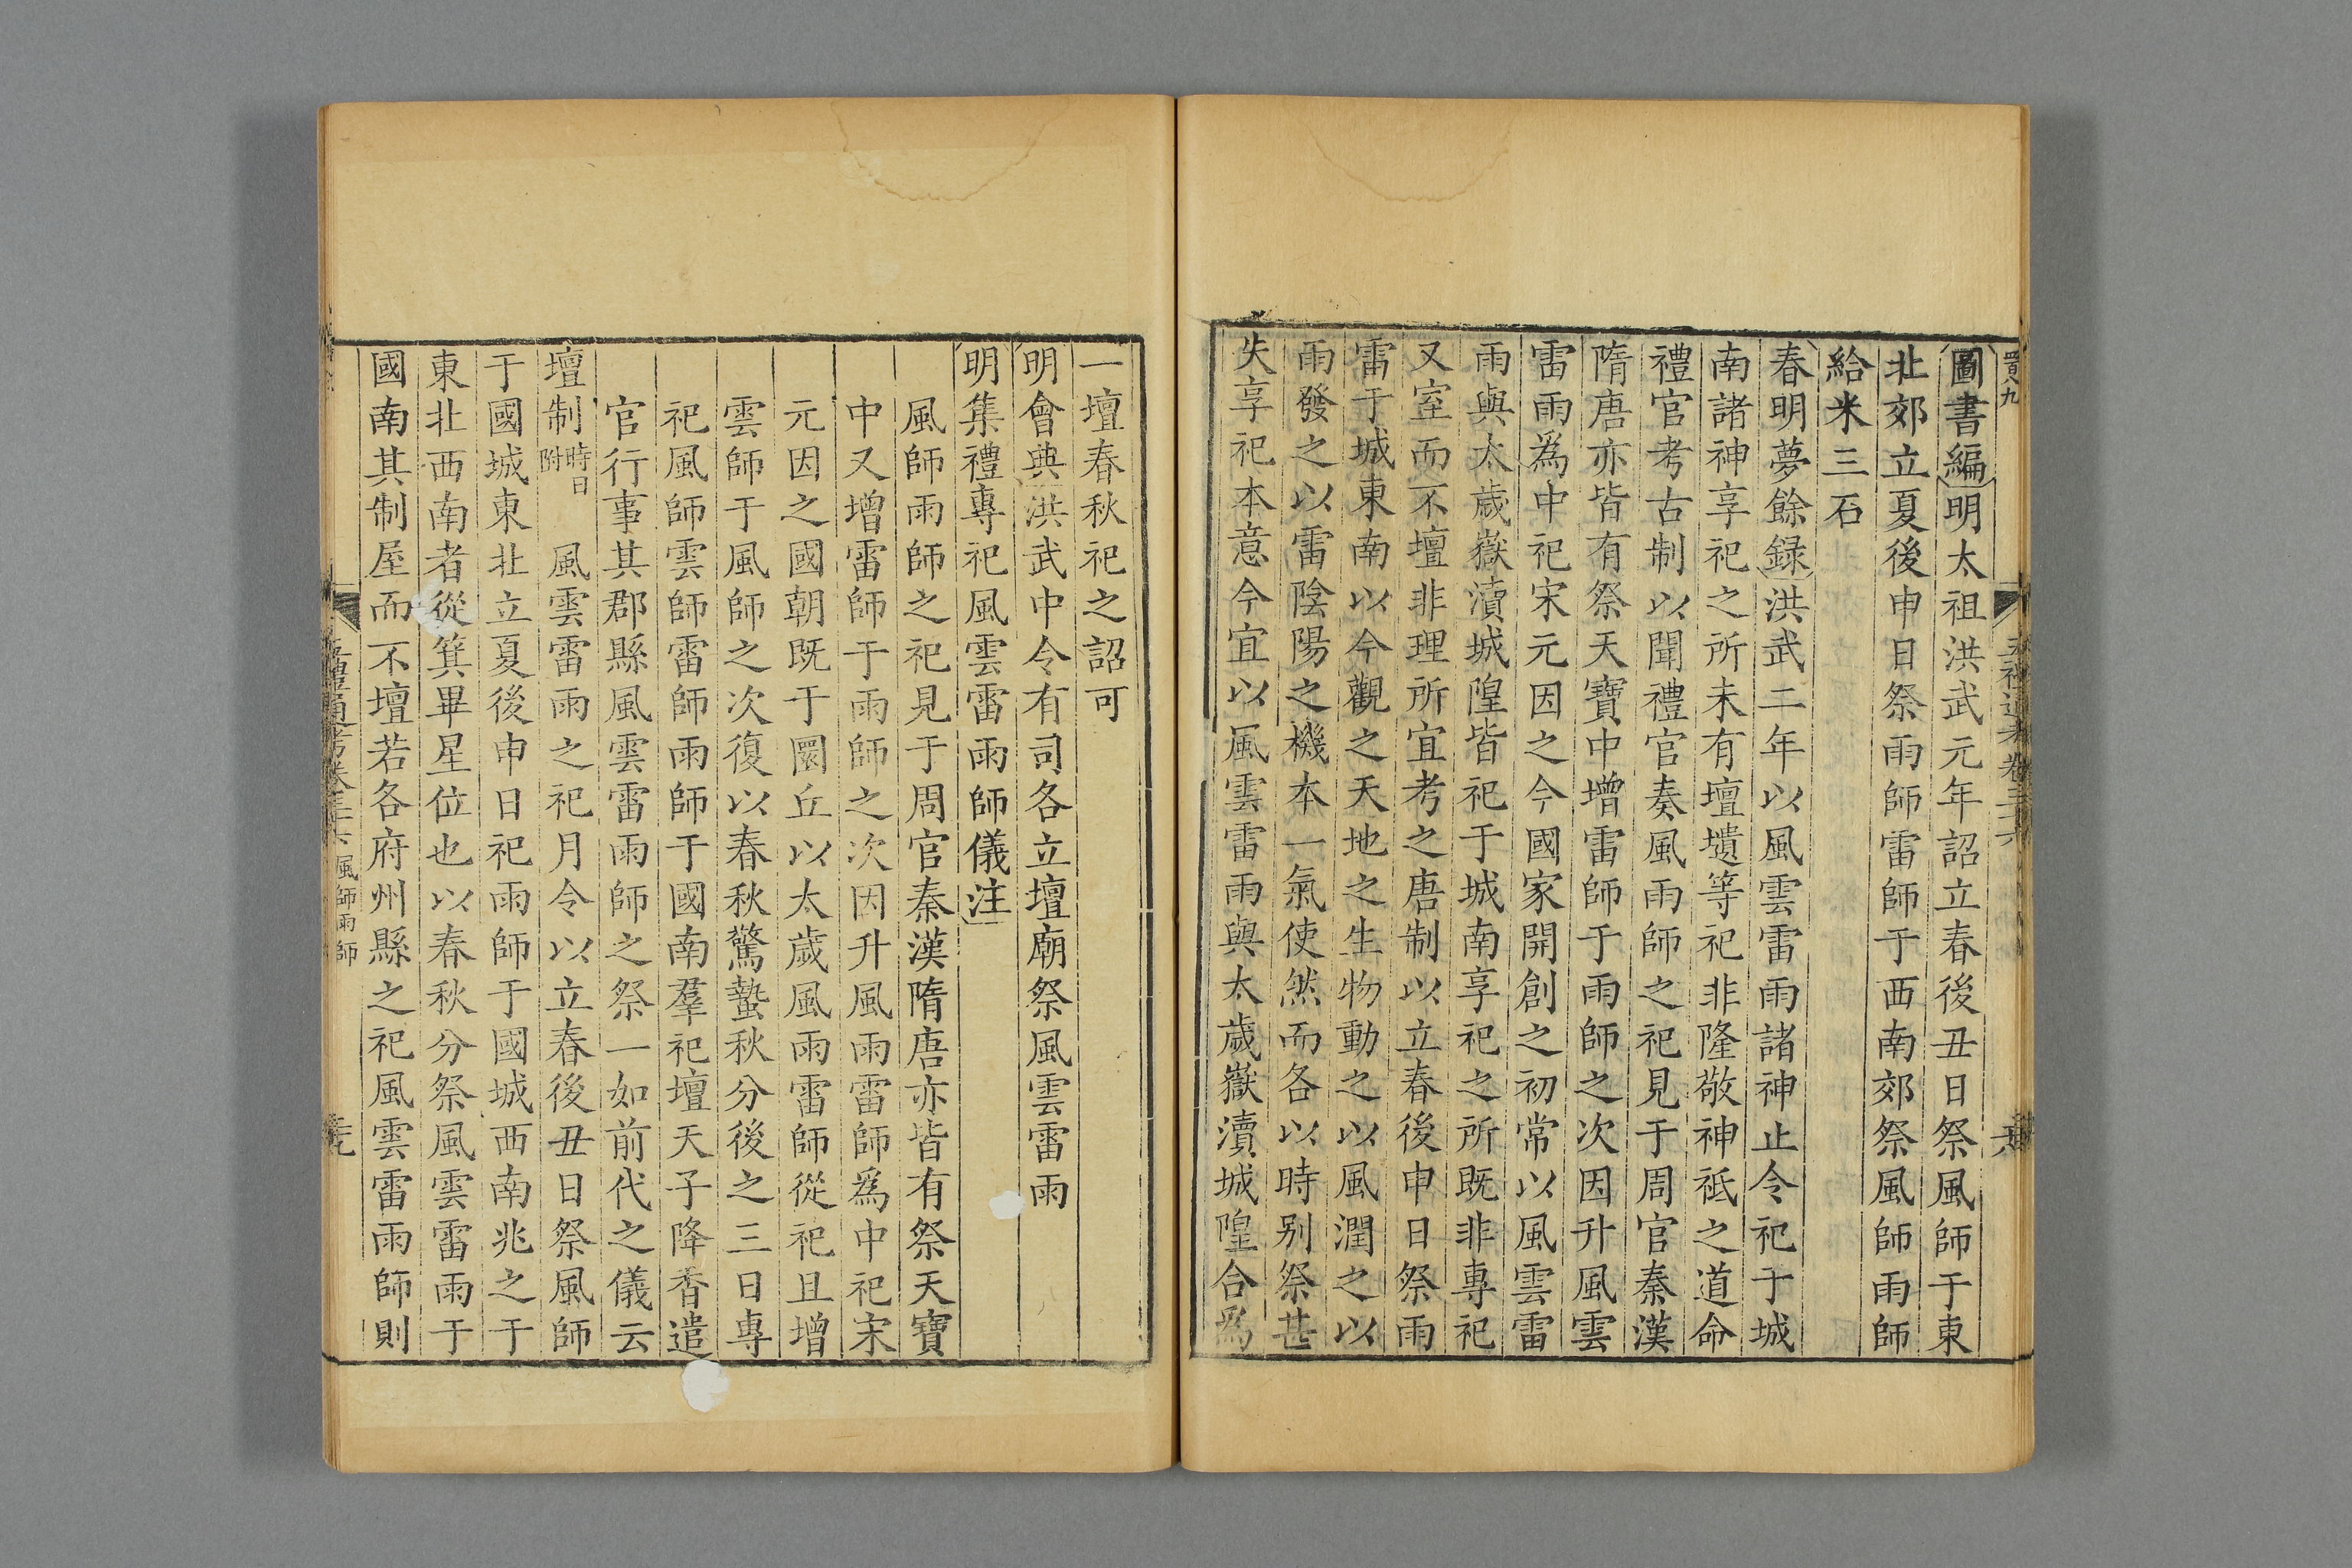 圖書編明太祖洪武元年詔立春後丑日祭風師于東
北郊立夏後申日祭雨師雷師于西南郊祭風師雨師
給米三石
春明夢餘録洪武二年以風雲雷雨諸神止令祀于城
南諸神享祀之所未有壇壝等祀非隆敬神祗之道命
禮官考古制以聞禮官奏風雨師之祀見于周官秦漢
隋唐亦皆有祭天寶中增雷師于雨師之次因升風雲
雷雨爲中祀宋元因之今國家開創之初常以風雲雷
雨與太歲嶽瀆城隍皆祀于城南享祀之所既非專祀
又室而不壇非理所宜考之唐制以立春後申日祭雨
雷于城東南以今觀之天地之生物動之以風潤之以
雨發之以雷陰陽之機本一氣使然而各以時别祭甚
失享祀本意今宜以風雲雷雨與太歲嶽瀆城隍合爲
一壇春秋祀之詔可
明會典洪武中令有司各立壇廟祭風雲雷雨
明集禮專祀風雲雷雨師儀注
風師雨師之祀見于周官秦漢隋唐亦皆有祭天寶
中又增雷師于雨師之次因升風雨雷師爲中祀宋
元因之國朝既于圜丘以太歲風雨雷師從祀且增
雲師于風師之次復以春秋驚蟄秋分後之三日專
祀風師雲師雷師雨師于國南羣祀壇天子降香遣
官行事其郡縣風雲雷雨師之祭一如前代之儀云
壇制時日附 風雲雷雨之祀月令以立春後丑日祭風師
于國城東北立夏後申日祀雨師于國城西南兆之于
東北西南者從箕畢星位也以春秋分祭風雲雷雨于
國南其制屋而不壇若各府州縣之祀風雲雷雨師則
風師雨師